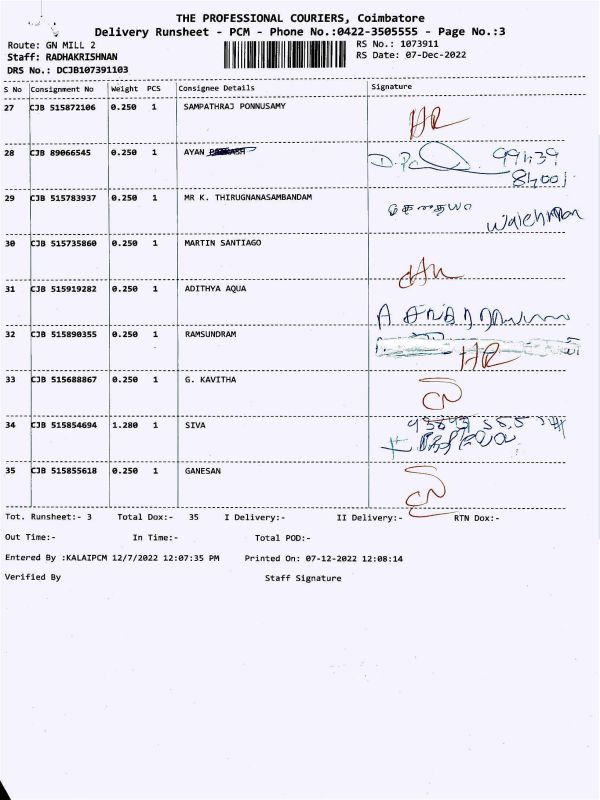 THE PROFESSIONAL COURIERS, Coimbatore
Delivery Runsheet - PCM - Phone No.:0422-3505555 - Page No.:3
Route: GN MILL 2
RS No.: 1073911
Staff: RADHAKRISHNAN
RS Date: 07-Dec-2022
DRS No.: DCJB107391103
S No Consignment No Weight PCS Consignee Details Signature
27 CJB 515872106 0.250 1 SAMPATHRAJ PONNUSAMY
HR
28 CJB 89066545 0.250 1 AYAN
29 CJB 515783937 0.250 1 MR K. THIRUGNANASAMBANDAM
watchman
30 CJB 515735860 0.250 1 MARTIN SANTIAGO
31 CJB 515919282 0.250 1 ADITHYA AQUA
32 CJB 515890355 0.250 1 RAMSUNDRAM
HR
33 CJB 515688867 0.250 1 G. KAVITHA
34 CJB 515854694 1.280 1 SIVA
35 CJB 515855618 0.250 1 GANESAN
Tot. Runsheet:- 3 Total Dox:- 35 I Delivery:- II Delivery:- RTN Dox:-
Out Time:- In Time:- Total POD:-
Entered By :KALAIPCM 12/7/2022 12:07:35 PM Printed On: 07-12-2022 12:08:14
Verified By Staff Signature